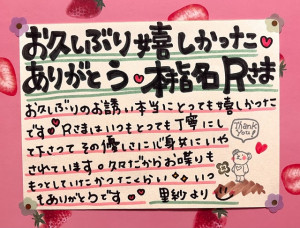 お久しぶり嬉しかった
ありがとう 本指名Rさま
お久しぶりのお誘い本当にとっても嬉しかった
です Rさまはいつもとっても丁寧にし
て下さって その優しさに心身共にいや
されています。久々だからお喋りも
もっとしていたかったくらい いつ
もありがとうです 里紗より
Thank you!